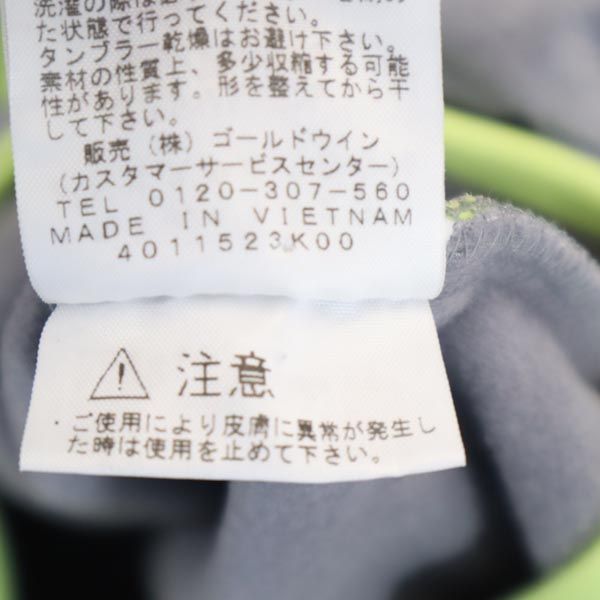 洗濯の際は
た状態で行ってください。
タンブラー乾燥はお避け下さい。
素材の性質上、多少収縮する可能
性があります。形を整えてから干
して下さい。
販売 (株) ゴールドウイン
(カスタマーサービスセンター)
TEL 0120-307-560
MADE IN VIETNAM
4011523K00
注意
・ご使用により皮膚に異常が発生し
た時は使用を止めて下さい。